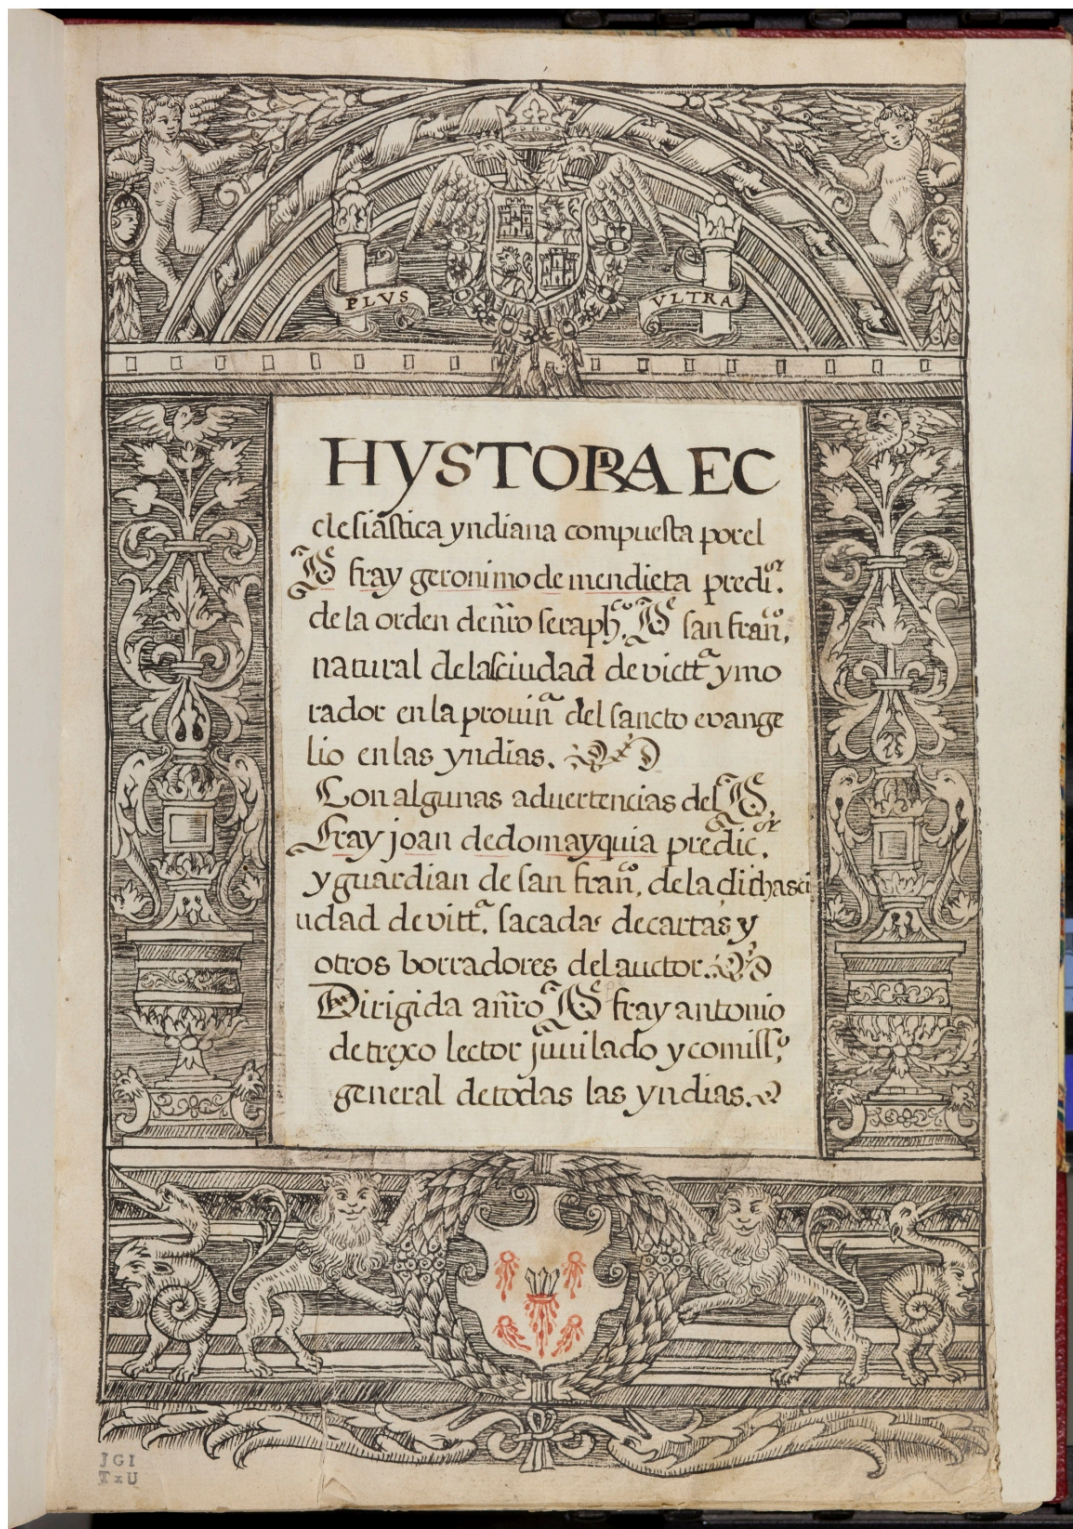 PLVS
VLTRA
HYSTORIA EC
clesiastica yndiana compuesta por el
P.e fray geronimo de mendieta predi.or
de la orden de nr̃o seraph.co P.e san fran.co,
natural de la sciudad de victt.a y mo
rador en la prouin.a del sancto evange
lio en las yndias.
Con algunas aduertencias del P.e
Fray joan de domayquia predic.or
y guardian de san fran.o, de la dicha sci
udad de vitt.a sacadas de cartas y
otros borradores del auctor.
Dirigida a nr̃o P.e fray antonio
de trexo lector juuilado y comiss.o
general de todas las yndias.
JGI
TxU